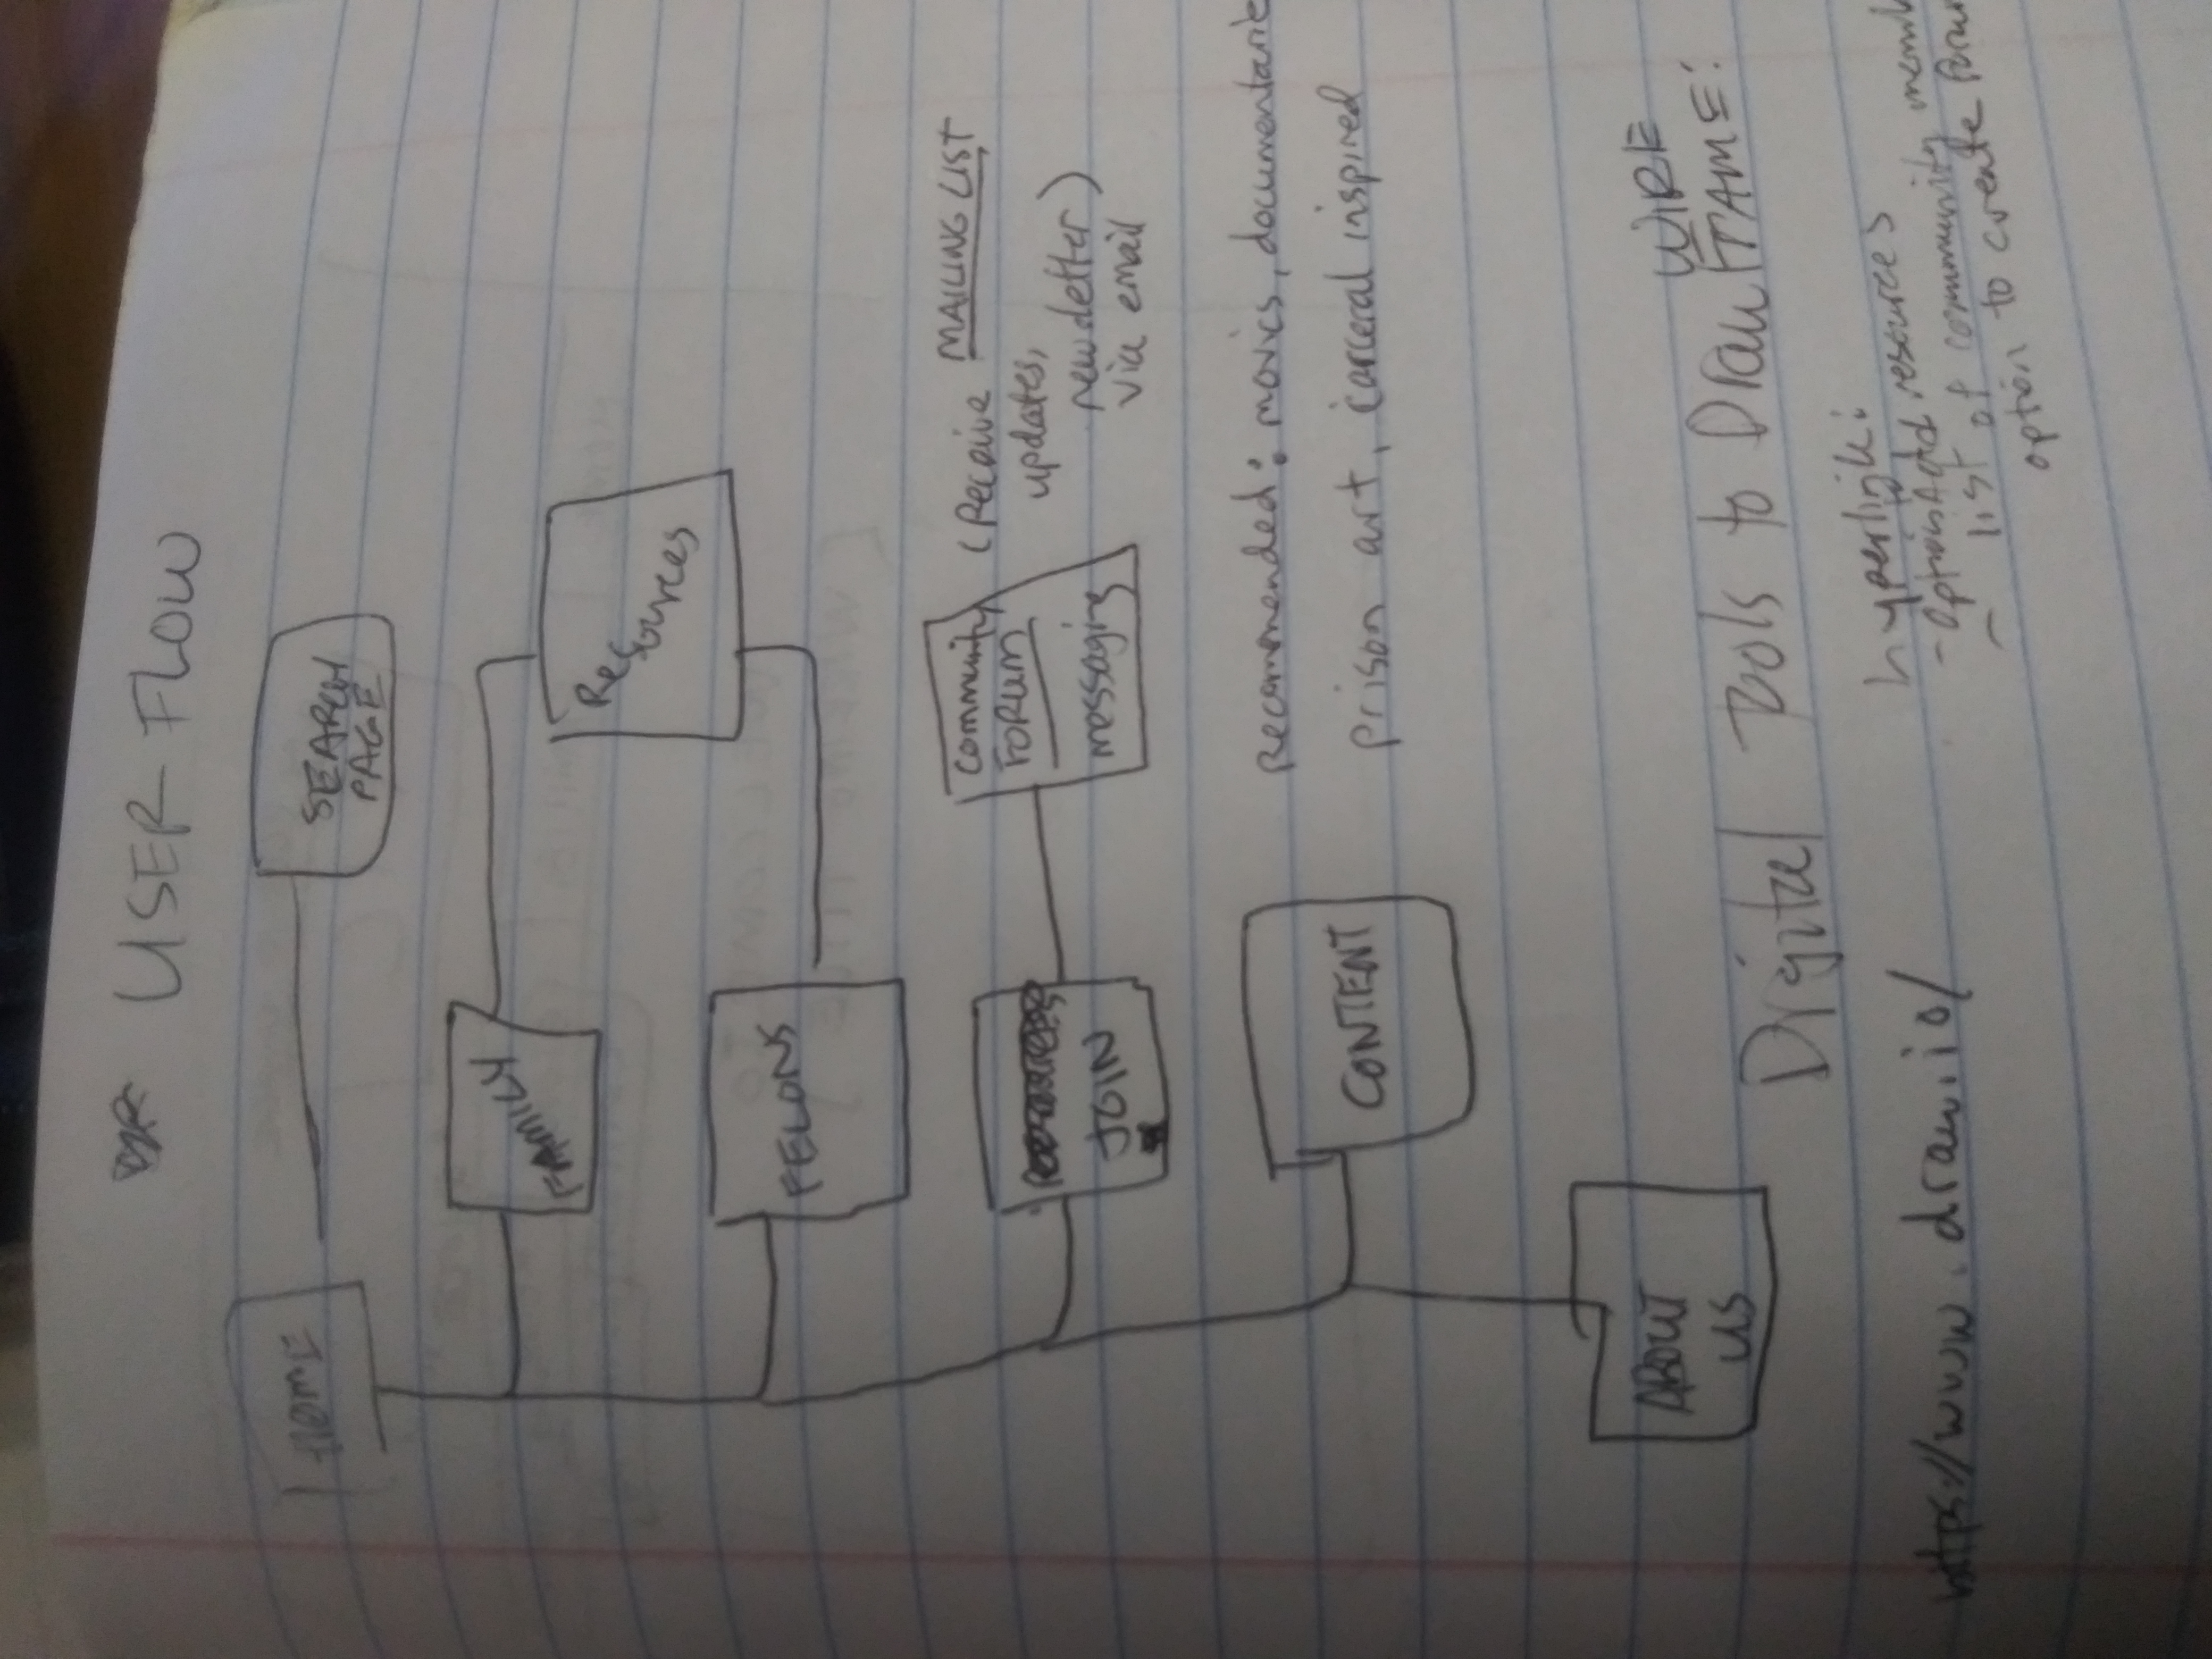 USER FLOW
HOME
SEARCH
PAGE
FAMILY
Resources
FELONS
JOIN
Community
FORUM
messaging
(Receive MAILING LIST
updates,
newsletter)
via email
CONTENT
Recommended: movies, documentarie
prison art, carceral inspired
ABOUT
US
WIRE
Digital Tools to Draw
https://www.draw.io/
hyperlink:
- option to Add resources
- list of community memb
option to create foru